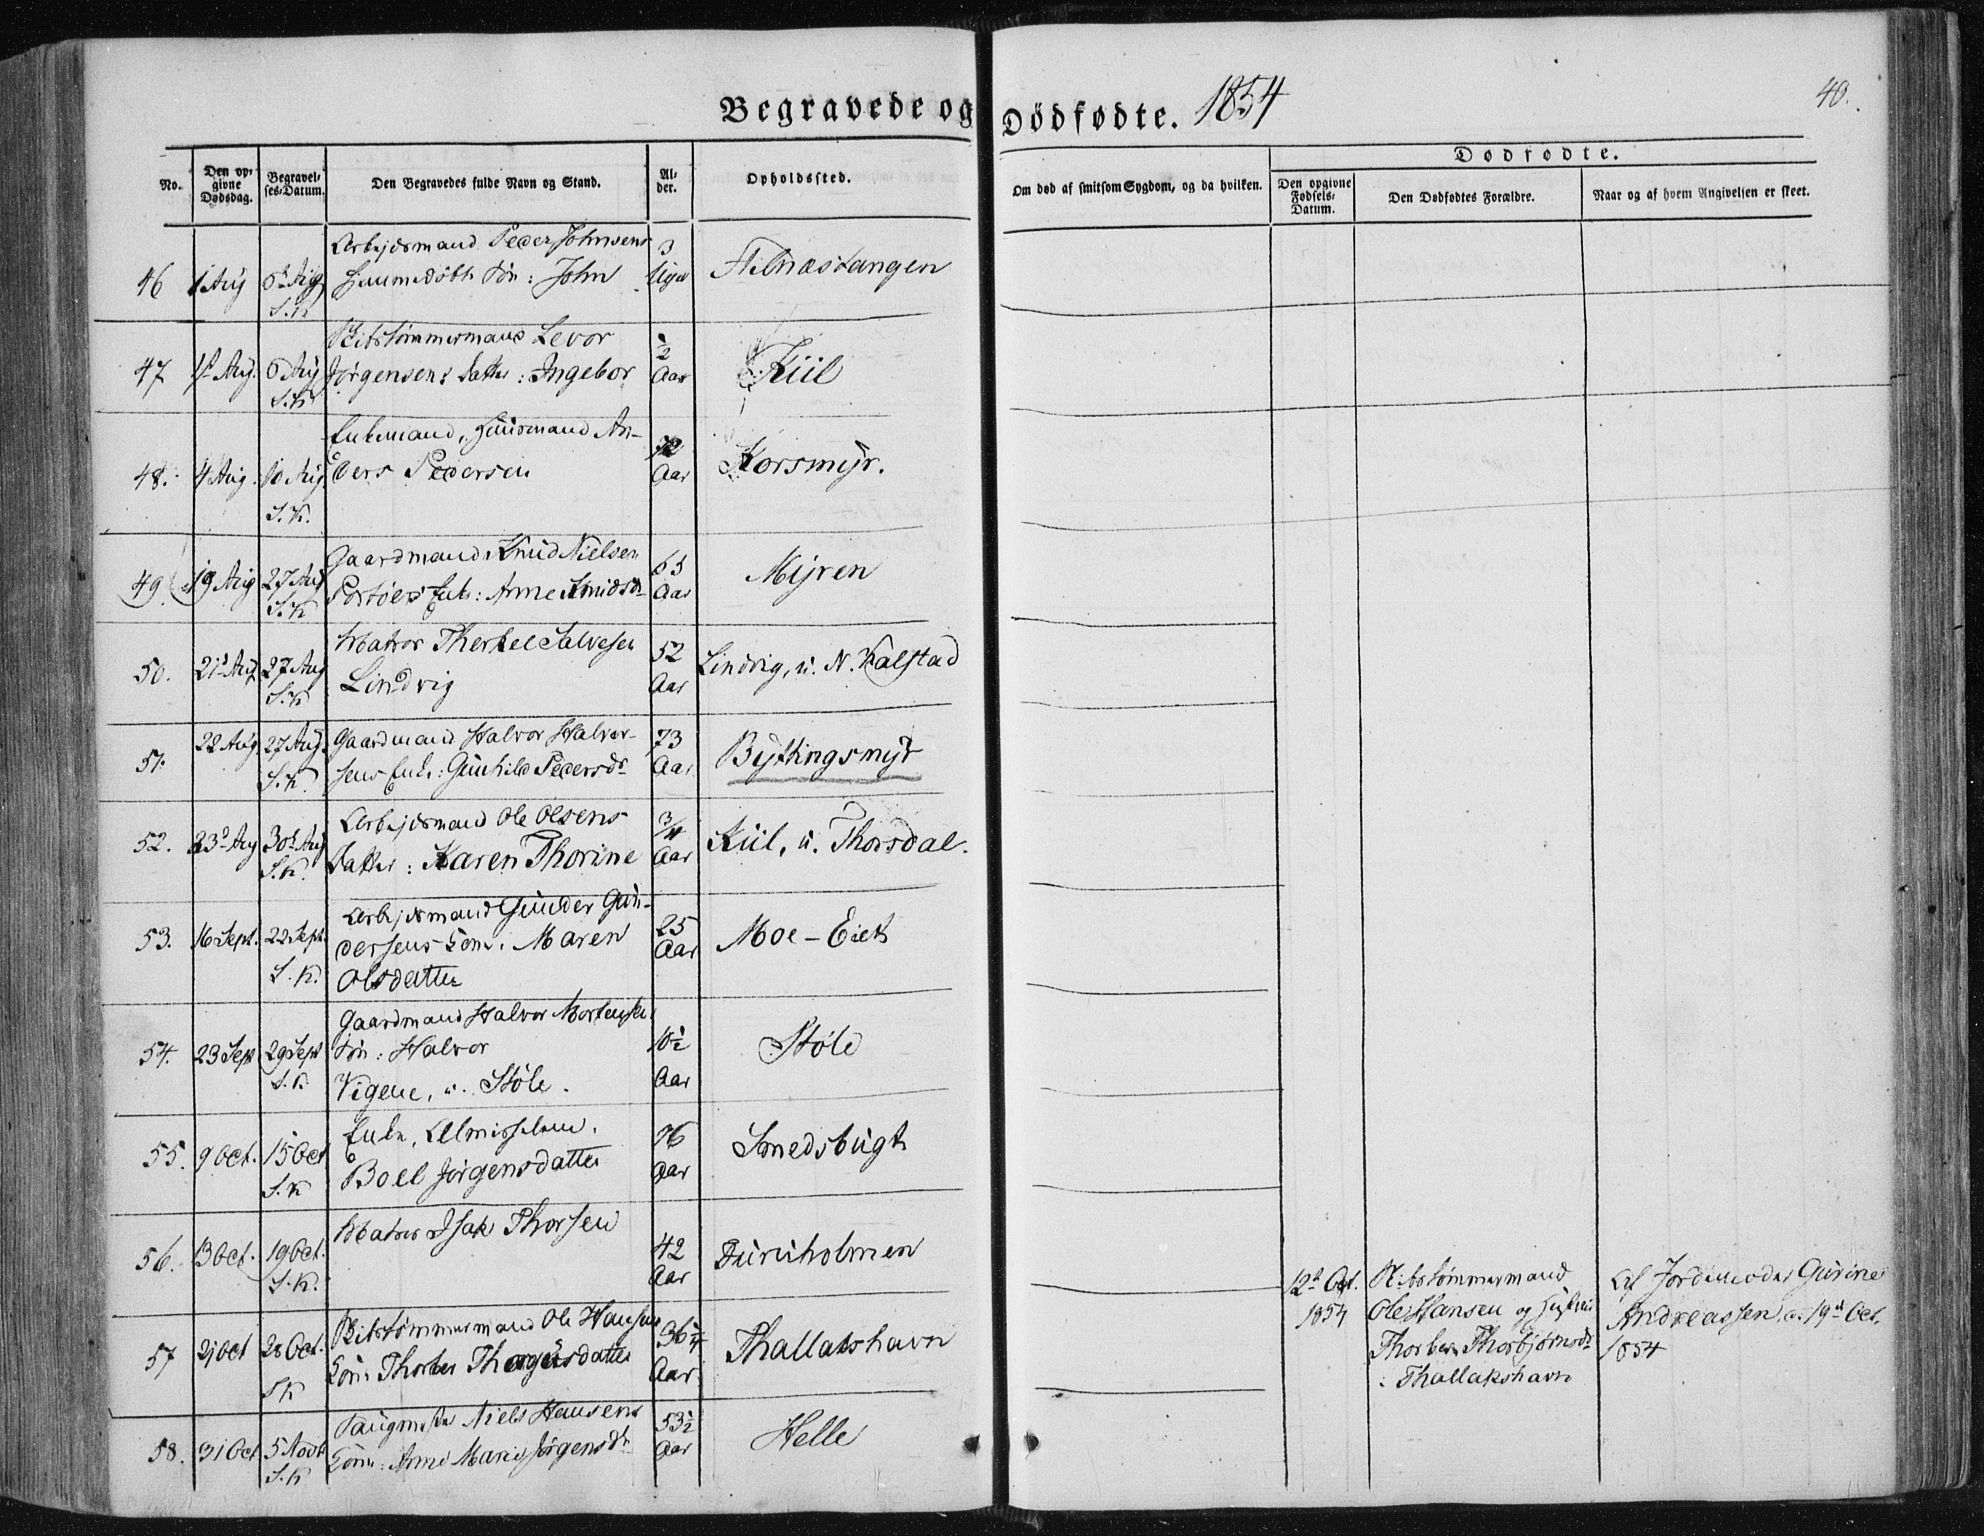 Begravede og Dødfødte. 1854
40.
No. Den opgivne Dødsdag. Begravelses-Datum. Den Begravedes fulde Navn og Stand. Alder. Opholdssted. Om død af smitsom Sygdom, og da hvilken. Dødfødte.
Den opgivne Fødsels-Datum. Den Dødfødtes Forældre. Naar og af hvem Angivelsen er skeet.
Arbejdsmand Peder Johnsens 3
46 1 Aug 6 Aug hjemmedøbte Søn: John Uger
S.K
Skibstømmermand Levor ½
47 1st Aug. 6 Aug Jørgensens Datter: Ingebor Aar Kiil
S.K
Enkemand, Huusmand An- 72
48. 4 Aug. 10 Aug. ders Pedersen Aar Korsmyr.
S.K.
Gaardmand Knud Nielsen 65
49. 19 Aug 27 Aug Portøers Enke: Anne Knudsdr Aar Myren
S.K
Matros Therkel Salvesen 52
50. 21 Aug 27 Aug Lindvig Aar Lindvig, u. N. Kalstad
S.K
22 Aug. 27 Aug. Gaardmand Halvor Halvor- 73
51. S.K. sens Enke: Gunhild Pedersdr Aar Byttingsmyr
Arbejdsmand Ole Olsens 3/4
52. 23 Aug 30 Aug Datter: Karen Thorine Aar Kiil, u. Thorsdal.
S.K.
Arbejdsmand Gunder Gun-
53. 16 Sept. 22 Sept. dersens Kone: Maren 25 Aar Moe-Eiet
S.K. Olsdatter
Gaardmand Halvor
54. 23 Sept 29 Sept Søn: Halvor 10½ Støle
S.K. Vigene, u. Støle. Aar
Enke, Almisselem. 76
55. 9 Oct. 15 Oct Boel Jørgensdatter Aar Smedsbugt
S.K
Matros Isak Thorsen
56. 13 Oct. 19 Oct. 42 Aar Furuholmen
S.K.
12 Oct. 1854 Skibstømmermand Ole Hansen og Hustrue Thorbor Thorbjørnsdr Thallakshavn
Af Jordemoder Gurine Andreassen, d. 19de Oct. 1854
Skibstømmermand Ole Hansens
57 21 Oct 28 Oct. Kone Thorbor 36¼ Aar Thallakshavn
S.K
Niels Hansens 53½
58. 31 Oct 5 Novb Kone: Anne Marie Jørgensdr Aar Helle
S.K